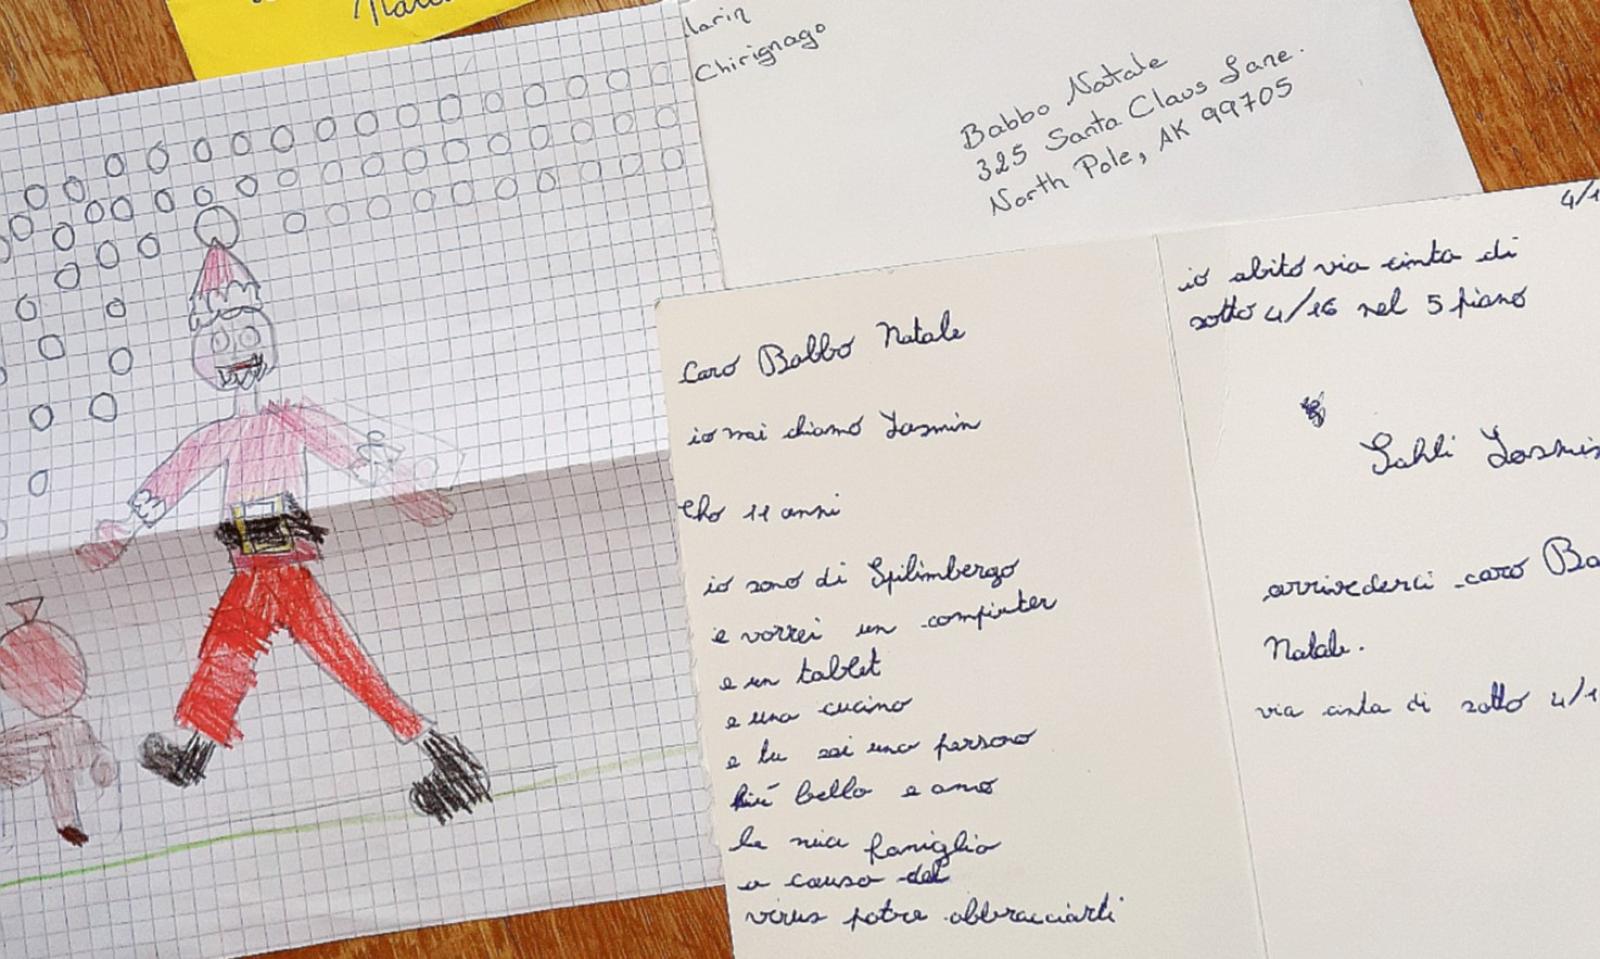 larin
Chirignago
Babbo Natale
325 Santa Claus Lane.
North Pole, AK 99705
Caro Babbo Natale
io mi chiamo Iasmin
ho 11 anni
io sono di Spilimbergo
e vorrei un compiuter
e un tablet
e una cucina
e tu sei una persona
più bella e amo
la mia famiglia
a causa del
virus potre abbracciarti
4/1
io abito via cinta di
sotto 4/16 nel 5 piano
Sahli Iasmin
arrivederci caro Ba
Natale.
via cinta di sotto 4/1